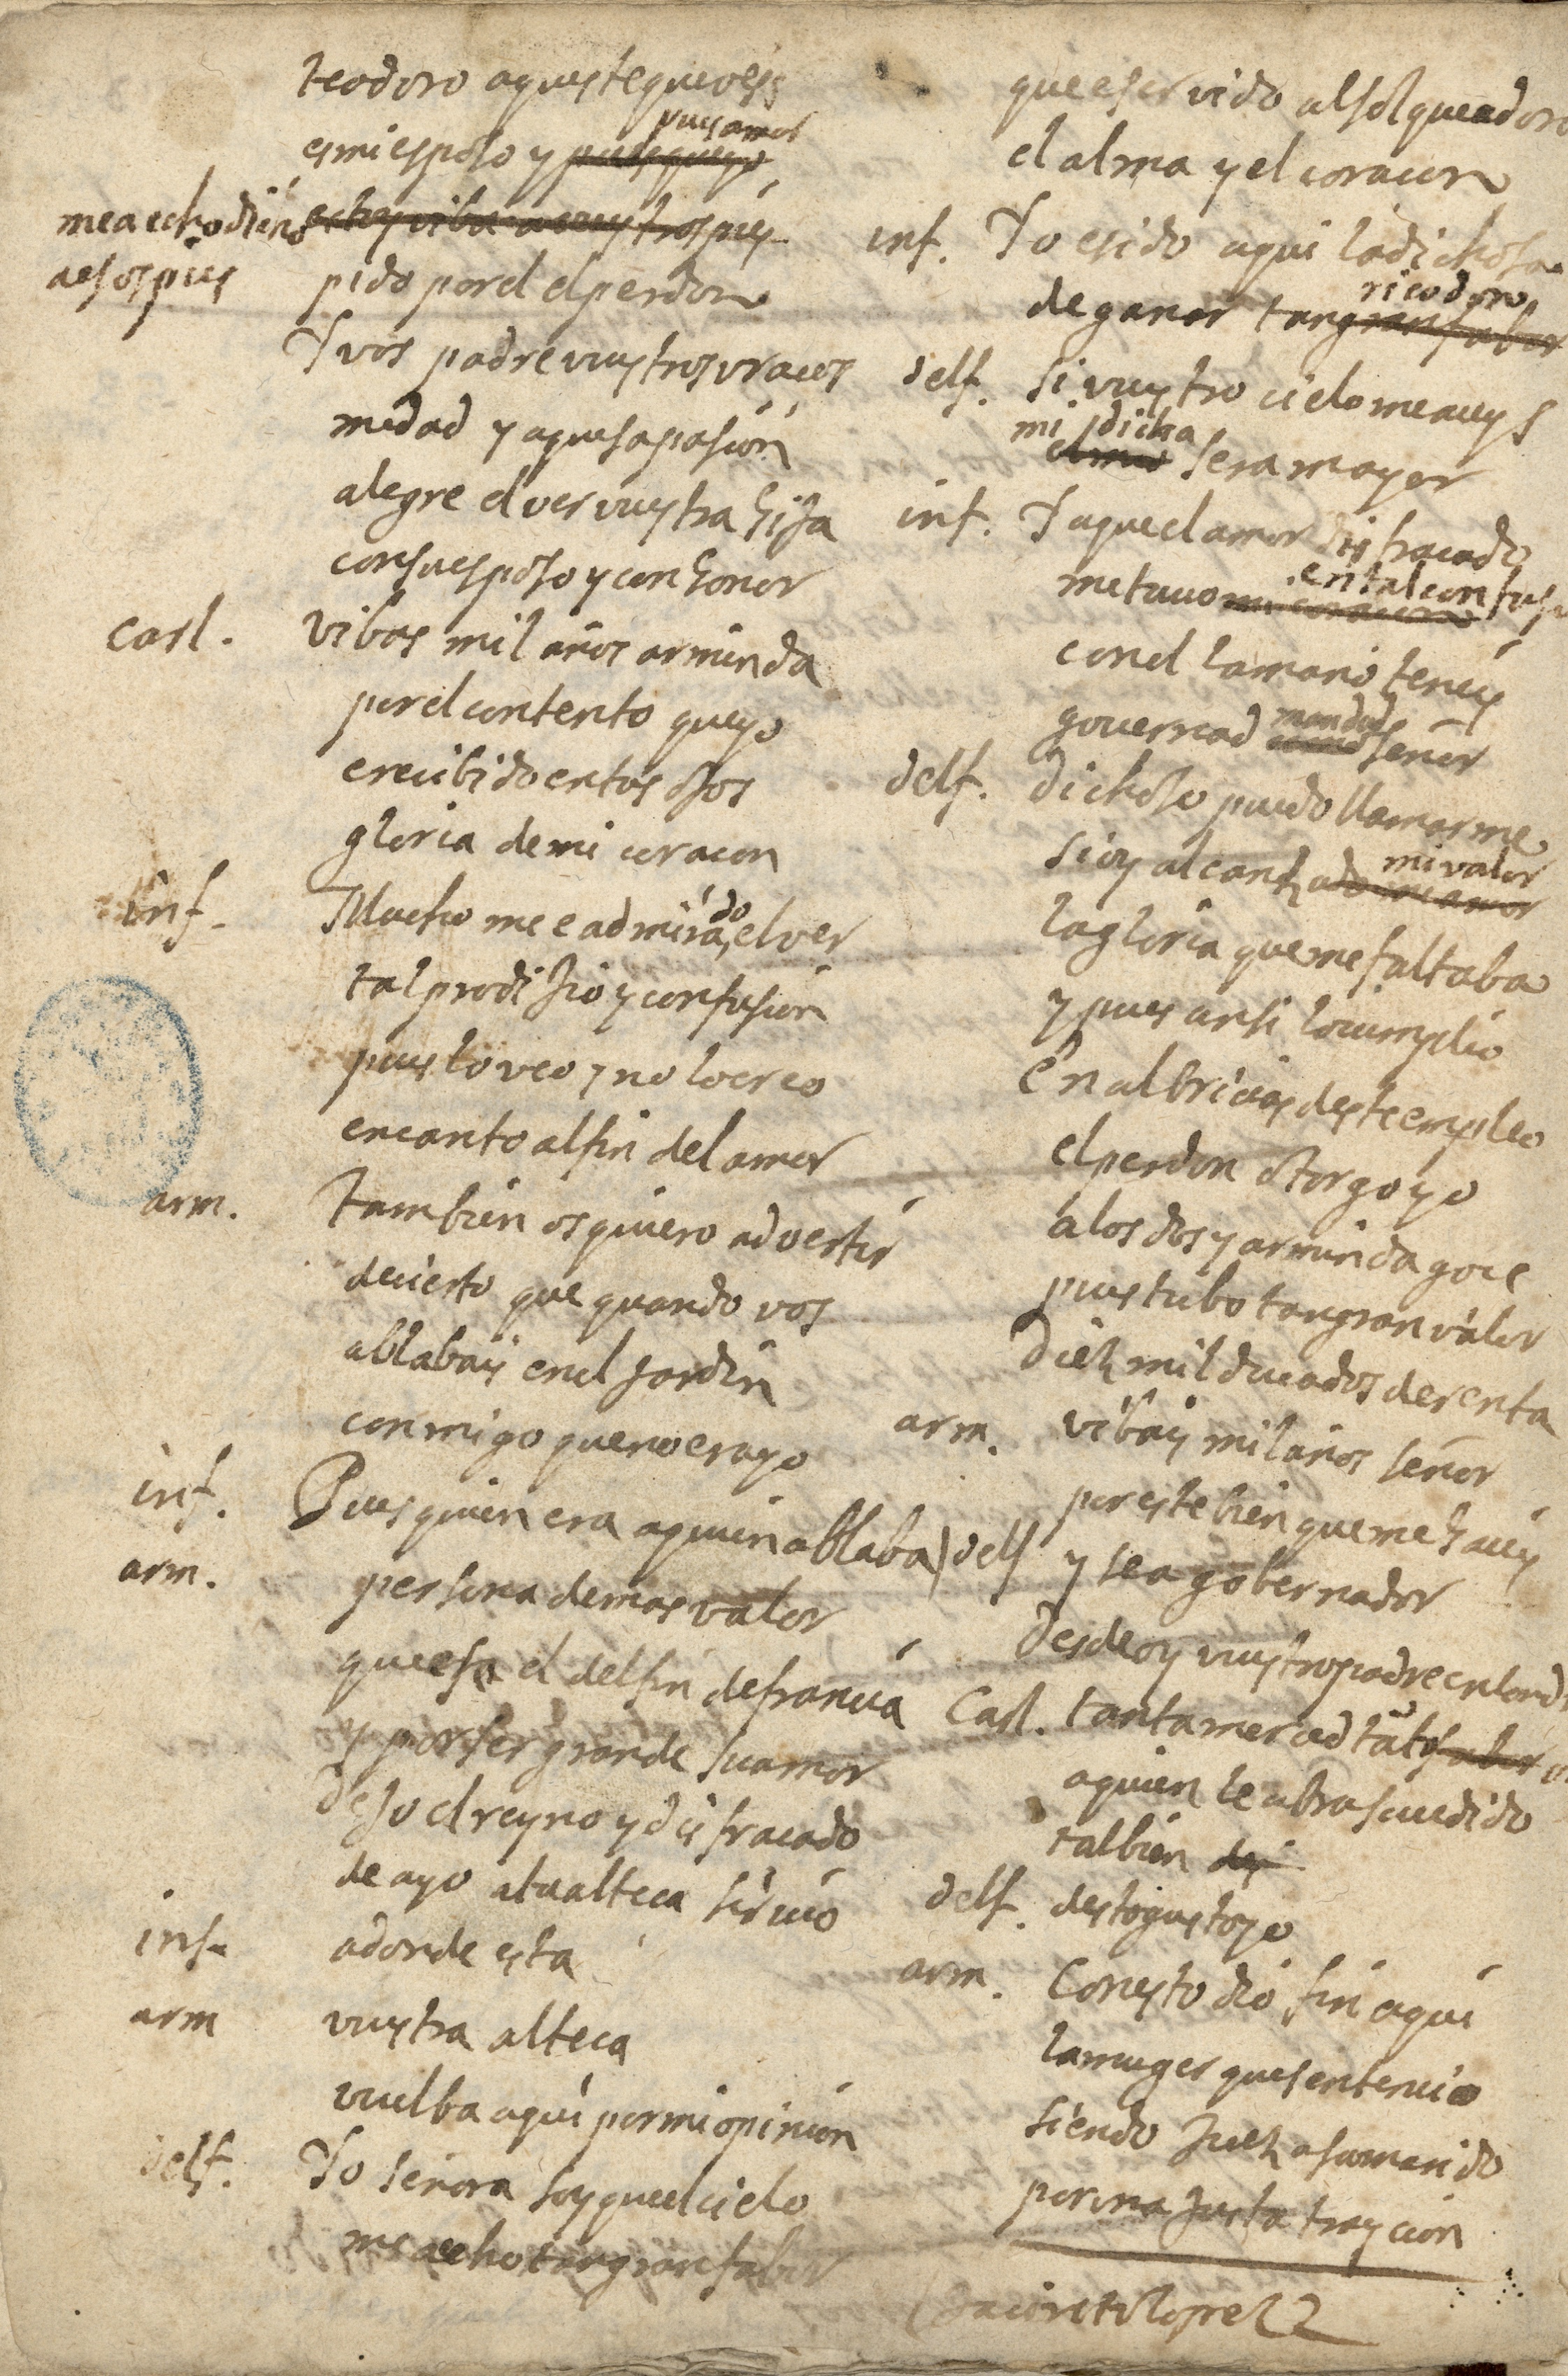 teodoro aqueste que veis
pues amor
es mi esposo y pues que yo
me a echo dicno
a esos pies
pido por el el perdon
Y vos padre vuestros vraços
me dad y aquesa pasion
alegre el ver vuestra hija
con su esposo y con honor
carl. vibas mil años arminda
por el contento que yo
e recibido en tus ojos
gloria de mi coraçon
inf. Mucho me e admirado, el ver
tal prodijio y confusion
pues lo veo y no lo creo
encanto al fin del amor
arm. tambien os quiero advertir
de cierto que quando vos
ablabais en el jardin
conmigo que no era yo
inf. Pues quien era a quien ablaba
arm. persona de mas valor
que es el delfin de francia
y por ser grande su amor
dejo el reyno y disfraçado
de ayo a tu alteça sirvio
inf. adonde esta
arm vuestra alteça
vuelba aqui por mi opinion
delf. Yo señora soy que el cielo
me a echo tan gran fabor
que e servido al sol que adoro
el alma y el coraçon
inf. Yo e sido aqui la dichosa
rico don
de ganar tan gran fabor
delf. si vuestro cielo me aceys
mi dicha
sera mayor
inf. Y a que el amor disfraçado
en tal confusi
me tuvo mi coraçon
con el la mano teneis
mandad
governad señor
delf. dichoso puedo llamarme
mi valor
si oy alcanza de mi amor
la gloria que me faltaba
y pues ansi lo cumplio
En albricias deste empleo
el perdon otorgo yo
a los dos y arminda goce
pues tubo tan gran valor
diez mil ducados de renta
arm. vibais mil años señor
por este bien que me haceis
delf y sea gobernador
desde oy vuestro padre en lond
Carl. tanta merced tãto fabor
a quien le abra sucedido
tal bien
delf. desto gusto yo
arm. Con esto dio fin aqui
la muger que sentencio
siendo juez a su marido
por una justa traycion
Jacinto lopez